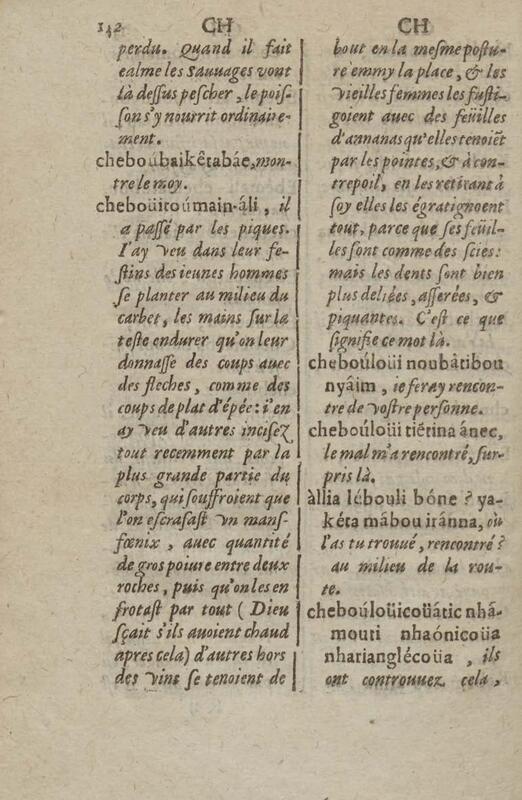 142 CH CH
perdu. Quand il fait
calme les Sauuages vont
là dessus pescher, le pois-
son s'y nourrit ordinaire-
ment.
cheboubaikêtabáe, mon-
tre le moy.
cheboüitoúmain-áli, il
a passé par les piques.
I'ay veu dans leur fe-
stins des ieunes hommes
se planter au milieu du
carbet, les mains sur la
teste endurer qu'on leur
donnasse des coups auec
des fleches, comme des
coups de plat d'épée: i'en
ay veu d'autres incisez
tout recemment par la
plus grande partie du
corps, qui souffroient que
l'on escrasast vn mans-
fœnix, auec quantité
de gros poiure entre deux
roches, puis qu'on les en
frotast par tout (Dieu
sçait s'ils auoient chaud
apres cela) d'autres hors
des vins se tenoient de
bout en la mesme postu-
re emmy la place, & les
vieilles femmes les fusti-
goient auec des feüilles
d'annanas qu'elles tenoiẽt
par les pointes, & à con-
trepoil, en les retirant à
soy elles les égratignoent
tout, parce que ses feüil-
les sont comme des scies:
mais les dents sont bien
plus deliées, asserées, &
piquantes. C'est ce que
signifie ce mot là.
cheboúloüi noubâtibou
nyâim, ie feray rencon-
tre de vostre personne.
cheboúloüi tiẽtina ánec,
le mal m'a rencontré, sur-
pris là.
àllia lébouli bóne? ya-
kéta mâbou iránna, où
l'as tu trouué, rencontré?
au milieu de la rou-
te.
cheboúloüicoüátic nhá-
mouti nhaónicoüa
nharianglécoüa, ils
ont controuuez cela,